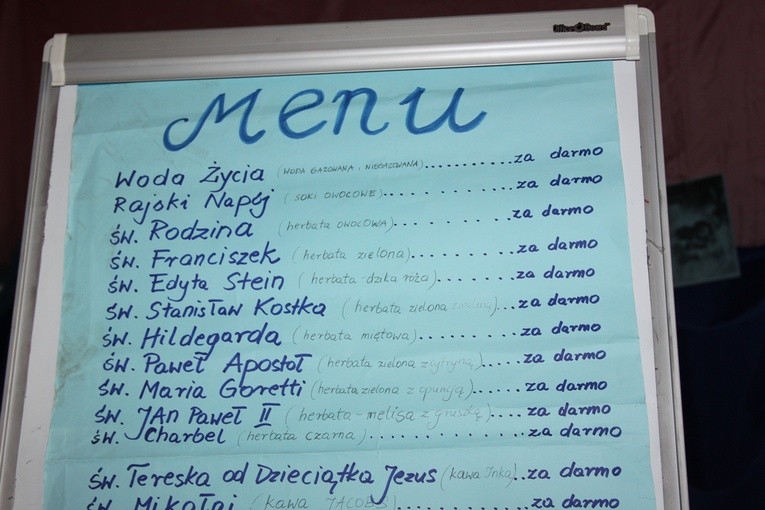 Office Board
Menu
Woda Życia (WODA GAZOWANA, NIEGAZOWANA)..........za darmo
Rajski Napój (SOKI OWOCOWE)..............za darmo
św. Rodzina (herbata OWOCOWA)............za darmo
św. Franciszek (herbata zielona)..........za darmo
św. Edyta Stein (herbata - dzika róża)........za darmo
św. Stanisław Kostka (herbata zielona)...za darmo
św. Hildegarda (herbata miętowa)..........za darmo
św. Paweł Apostoł (herbata zielona z cytryną)....za darmo
św. Maria Goretti (herbata zielona z opuncją)......za darmo
św. JAn Paweł II (herbata - melisa z gruszką)....za darmo
św. Charbel (herbata czarna)..............za darmo
św. Tereska od Dzieciątka Jezus (kawa Inka)..za darmo
św. Mikołaj (kawa JACOBS)............za darmo